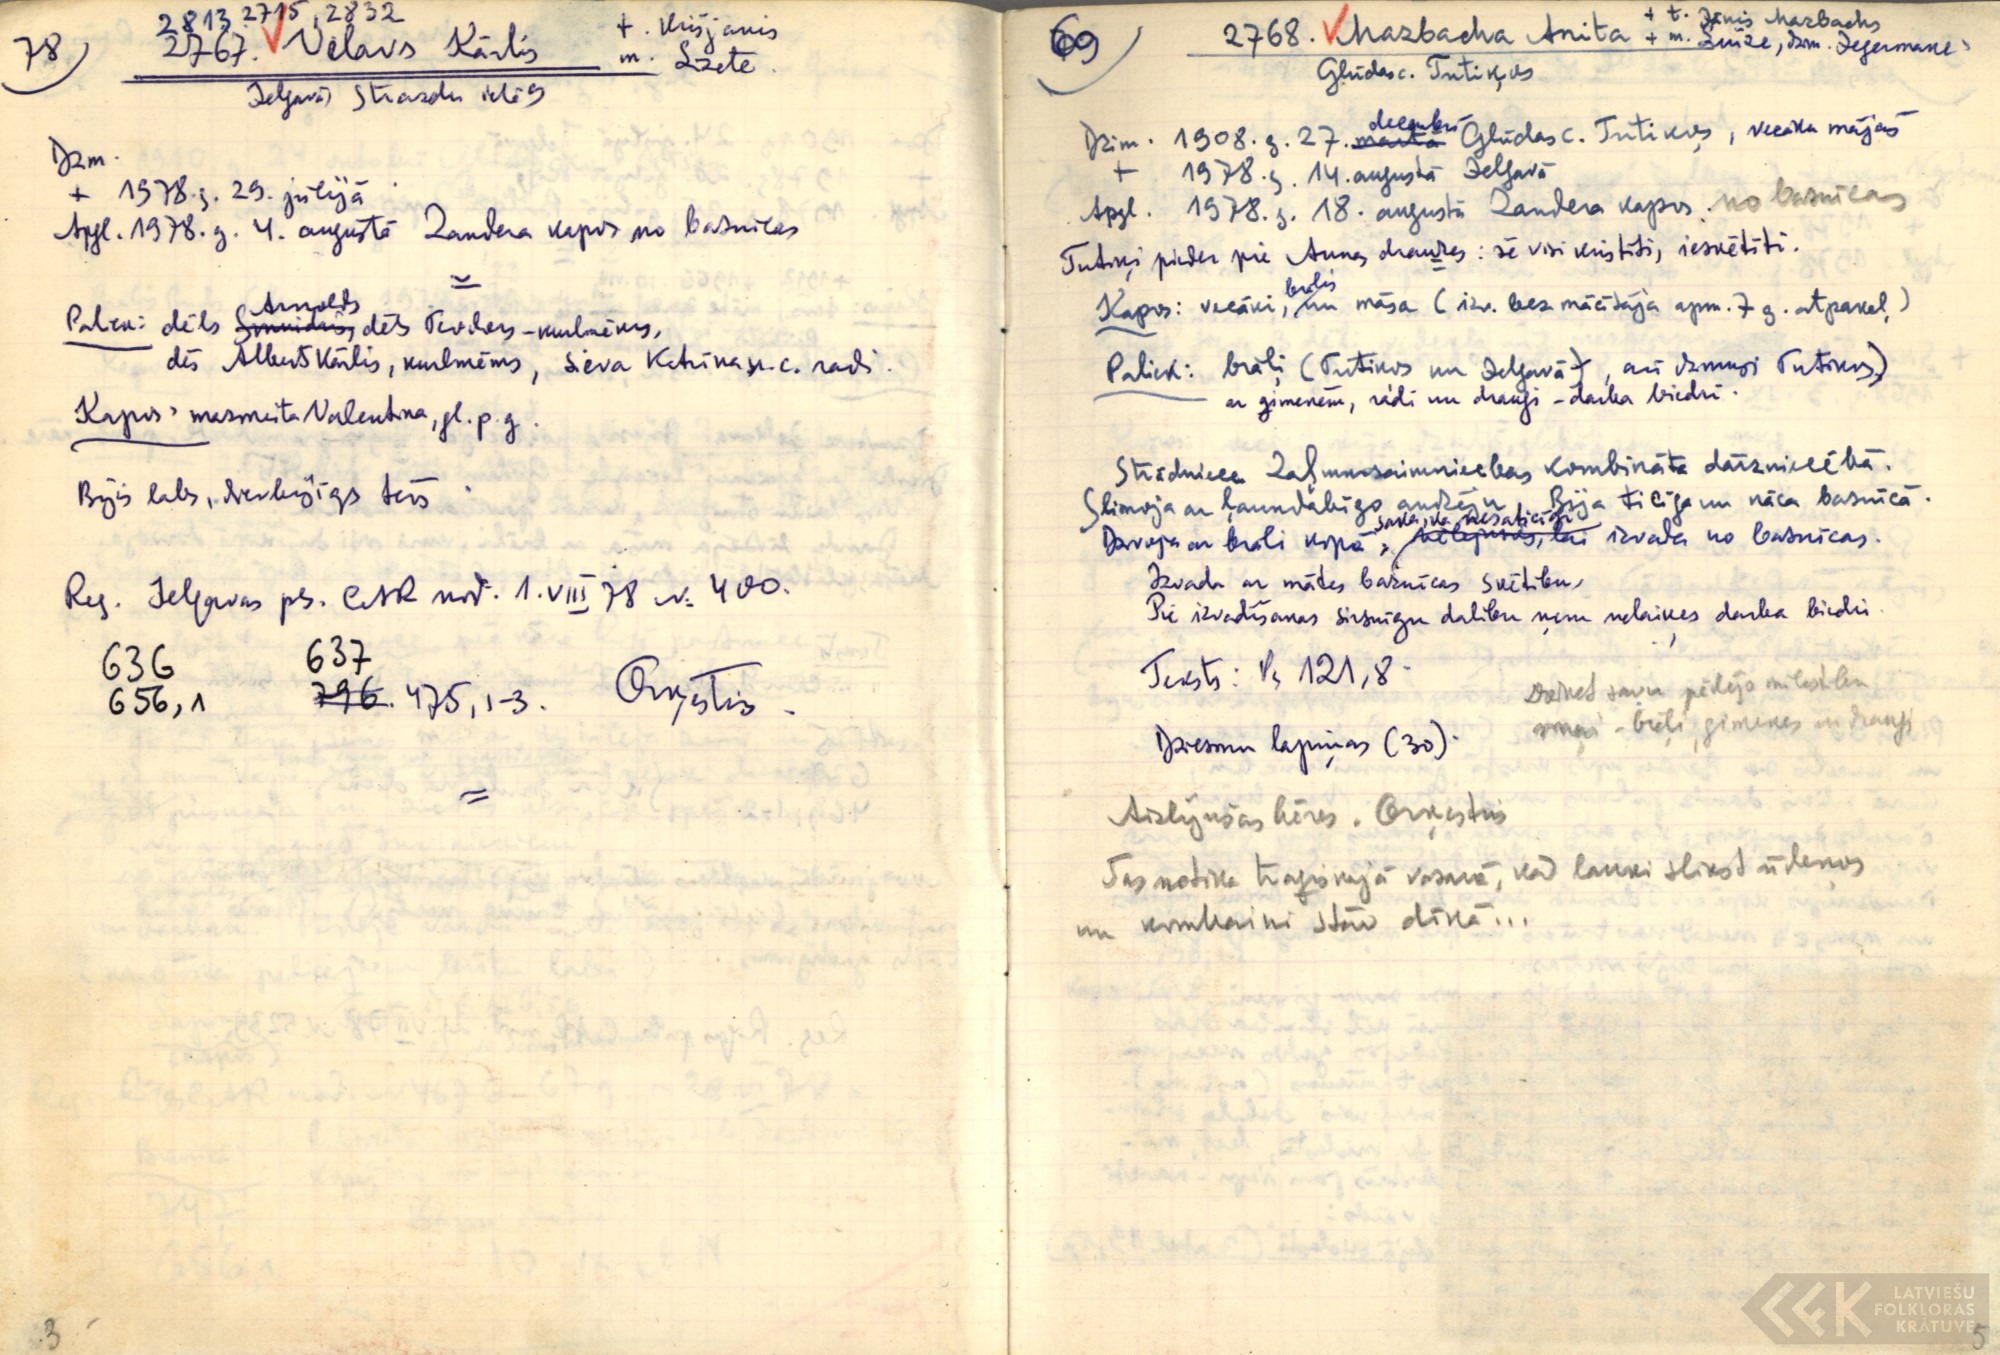 2813. 2715, 2832
78) 2767. Vēlavs Kārlis
t. Krišjanis
m. Līzete.
Jelgavā, Strazdu ielā 9
Dzm.
+ 1978.g. 29. jūlijā.
Apgl. 1978.g. 4. augustā Zandera kapos no baznīcas
Paliek: dēls Arnolds, dēls Teodors - kurlmēms,
dēls Alberts Kārlis, kurlmēms, sieva Katrīna u.c. radi.
Kapos: mazmeita Valentina, gl. p. g.
Bijis labs, darbīgs tēvs.
Reg. Jelgavas pils. CAR nod. 1. VIII 78 N. 400.
636 637
656,1 796. 475, 1-3. Orķestris.
3
69) 2768. Mazbacha Anita
+ t. Jānis Mazbachs
+ m. Luīze, dzm. Jegermane
Glūdas c. Tutiķos
Dzim. 1908.g. 27. martā decembrī Glūdas c. Tutiķos, vecāku mājās
+ 1978.g. 14. augustā Jelgavā
Apgl. 1978.g. 18. augustā Zandera kapos. no baznīcas
Tutiķi pieder pie Annas draudzes: še visi kristīti, iesvētīti.
Kapos: vecāki, brālis un māsa (izv. bez mācītāja apm. 7 g. atpakaļ)
Paliek: brāļi (Tutiķos un Jelgavā), arī dzimuši Tutiķos)
ar ģimenēm, radi un draugi - darba biedri.
Strādniece Zaļumsaimniecības kombināta dārzniecībā.
Slimoja ar ļaundabīgo audzēju. Bija ticīga un nāca baznīcā.
Dzīvoja ar brāli kopā, izvada no baznīcas.
Izvada ar mātes baznīcas svētību,
Pie izvadīšanas sirsnīgu dalību ņem nelaiķes darba biedri.
Teksts: Ps 121,8.
Dziesmu lapiņas (30).
savu pēdējo mīlestību
brāļi, ģimenes un draugi
Aizlijušas bēres. Orķestris
Tas notika traģiskajā vasarā, kad lauki slīkst ūdeņos
un kombaini stāv dīkā...
5
LATVIEŠU
FOLKLORAS
KRĀTUVE